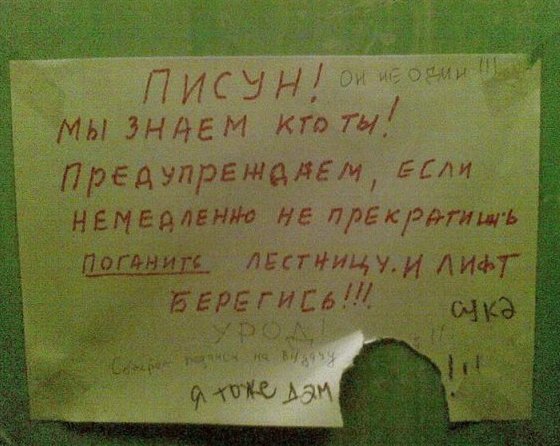 ПИСУН! ОН НЕ ОДИН!!!
МЫ ЗНАЕМ КТО ТЫ!
ПРЕДУПРЕЖДАЕМ, ЕСЛИ
НЕМЕДЛЕННО НЕ ПРЕКРАТИШЬ
ПОГАНИТЬ ЛЕСТНИЦУ. И ЛИФТ
БЕРЕГИСЬ!!!
сука
УРОД!
подписи на
я тоже дам !!!